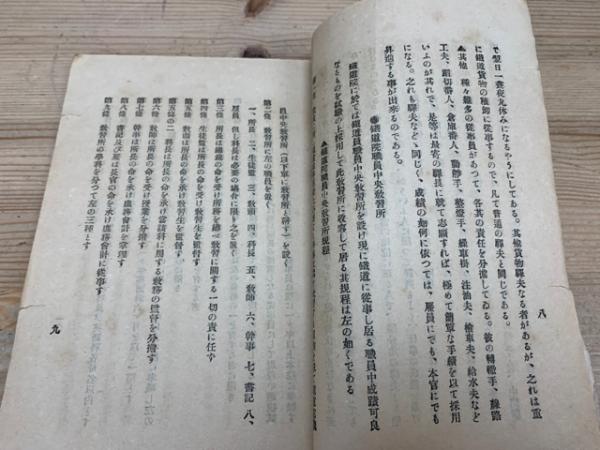 八
で翌日一晝夜丸休みになるやうにしてある。其他貨物驛夫なる者があるが、之れは重
に鐵道貨物の積卸に從事するので、凡て普通の驛夫と同じである。
▲其他 種々雜多の從事員があつて、各其の責任を分擔してゐる。彼の轉轍手、線路
工夫、踏切番人、倉庫番人、制動手、整燈手、操車掛、注油夫、檢車夫、給水夫など
いふのが其れで、是等は最寄の驛長に就て志願すれば、極めて簡單な手續を以て採用
になる。之れも驛夫などゝ同じく、成績の如何に依つては、雇員にでも、本官にでも
昇進する事が出來るのである。
◉鐵道院職員中央敎習所
鐵道院に於ては鐵道員職員中央敎習所を設け現に鐵道に從事し居る職員中成蹟可良
なるものを試驗の上採用して此敎習所に收容して居る其規程は左の如くである
▲鐵道院職員中央敎習所規程
員中央敎習所(以下單に敎習所と稱す)を設く
第二條 敎習所に左の職員を置く
一、所長 二、生徒監 三、敎頭 四、科長 五、敎師 六、幹事 七、書記 八、
雇員 但し科長は必要の場合に限り之を置く
第三條 所長は總裁の命を受け所務を總べ敎習に關する一切の責に任す
第四條 生徒監は所長の命を受け敎習生を監督す
第五條 敎頭は所長の命を承け敎習生を監督す
第五條の二 科長は所長の命を承け當該科に屬する敎務の監督を分擔す
第六條 敎師は所長の命を受け授業を分擔す
第七條 幹事は所長の命を承け庶務會計を掌理す
第八條 書記及び雇は長官の命を承け庶務會計に從事す
第九條 敎習所の學科を分つて左の三種とす
九